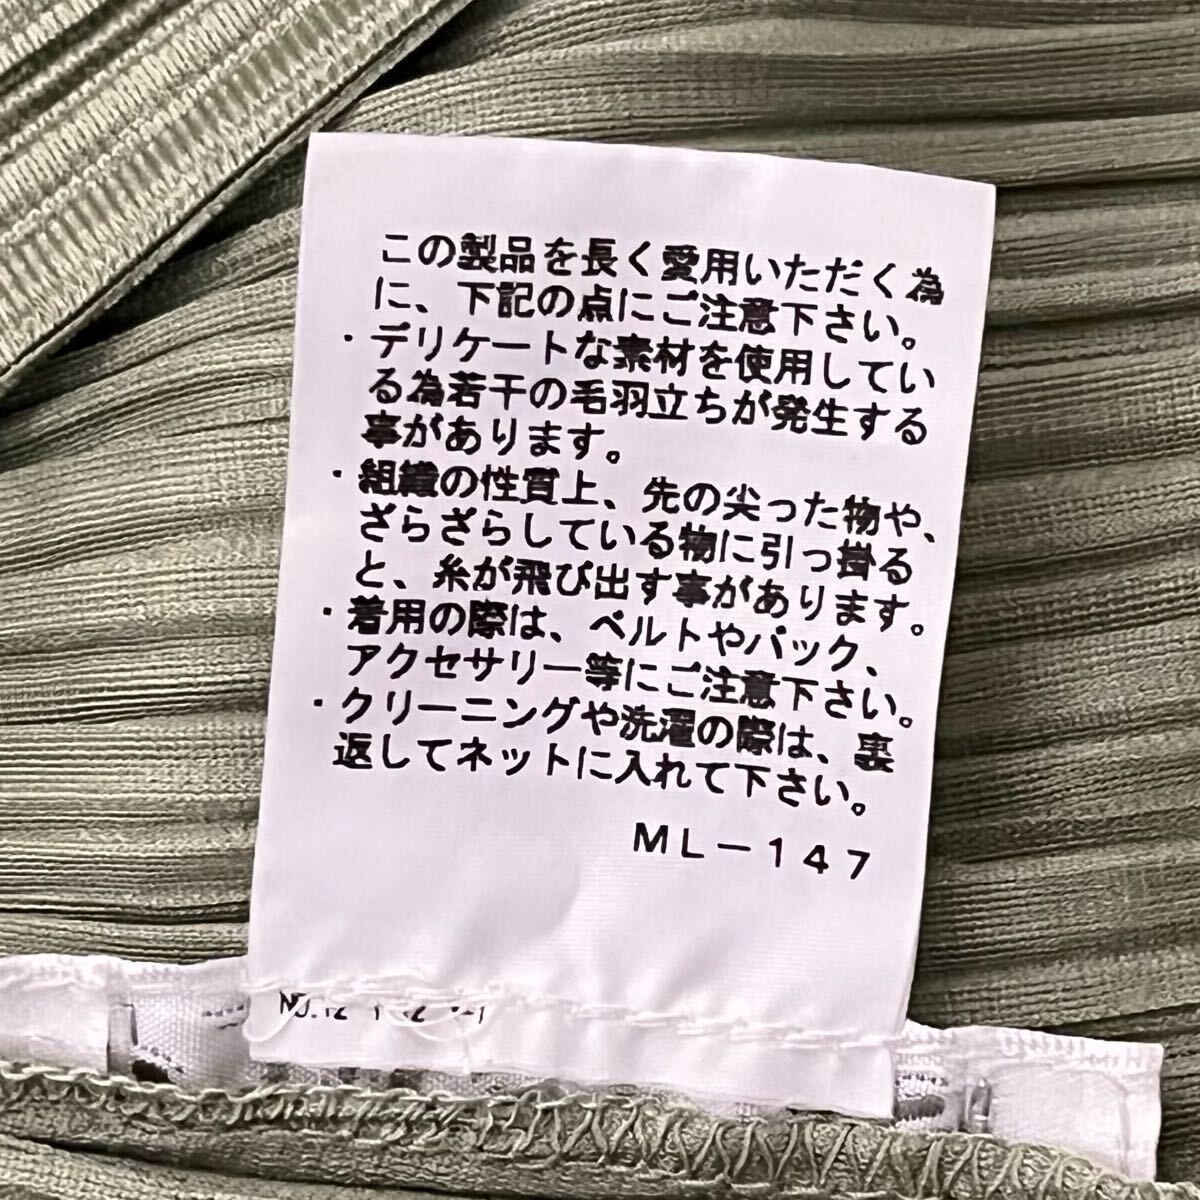 この製品を長く愛用いただく為
に、下記の点にご注意下さい。
・デリケートな素材を使用してい
る為若干の毛羽立ちが発生する
事があります。
・組織の性質上、先の尖った物や、
ざらざらしている物に引っ掛る
と、糸が飛び出す事があります。
・着用の際は、ベルトやバック、
アクセサリー等にご注意下さい。
・クリーニングや洗濯の際は、裏
返してネットに入れて下さい。
ML－147